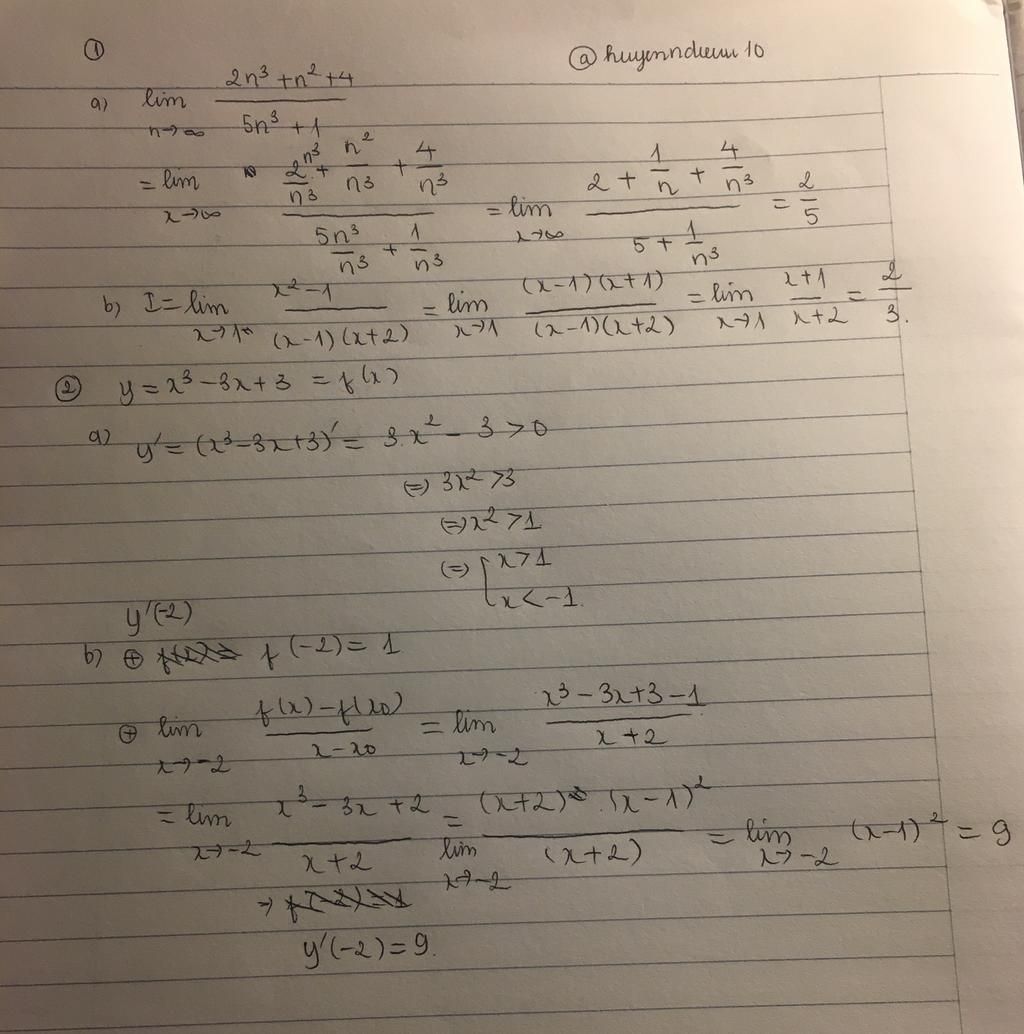 ① @ huyenndieuu 10
a) lim_{n→∞} (2n³ + n² + 4)/(5n³ + 1)
= lim_{x→∞} (2n³/n³ + n²/n³ + 4/n³)/(5n³/n³ + 1/n³) = lim_{x→∞} (2 + 1/n + 4/n³)/(5 + 1/n³) = 2/5
b) I = lim_{x→1} (x² − 1)/((x−1)(x+2)) = lim_{x→1} ((x−1)(x+1))/((x−1)(x+2)) = lim_{x→1} (x+1)/(x+2) = 2/3.
② y = x³ − 3x + 3 = f(x)
a) y' = (x³ − 3x + 3)' = 3.x² − 3 > 0
(=) 3x² > 3
(=) x² > 1
(=) [ x > 1
x < −1.
y'(−2)
b) ⊕ f(−2) = 1
⊕ lim_{x→−2} (f(x) − f(x0))/(x − x0) = lim_{x→−2} (x³ − 3x + 3 − 1)/(x + 2)
= lim_{x→−2} (x³ − 3x + 2)/(x + 2) = lim_{x→−2} ((x+2).(x−1)²)/((x+2)) = lim_{x→−2} (x−1)² = 9
→
y'(−2) = 9.